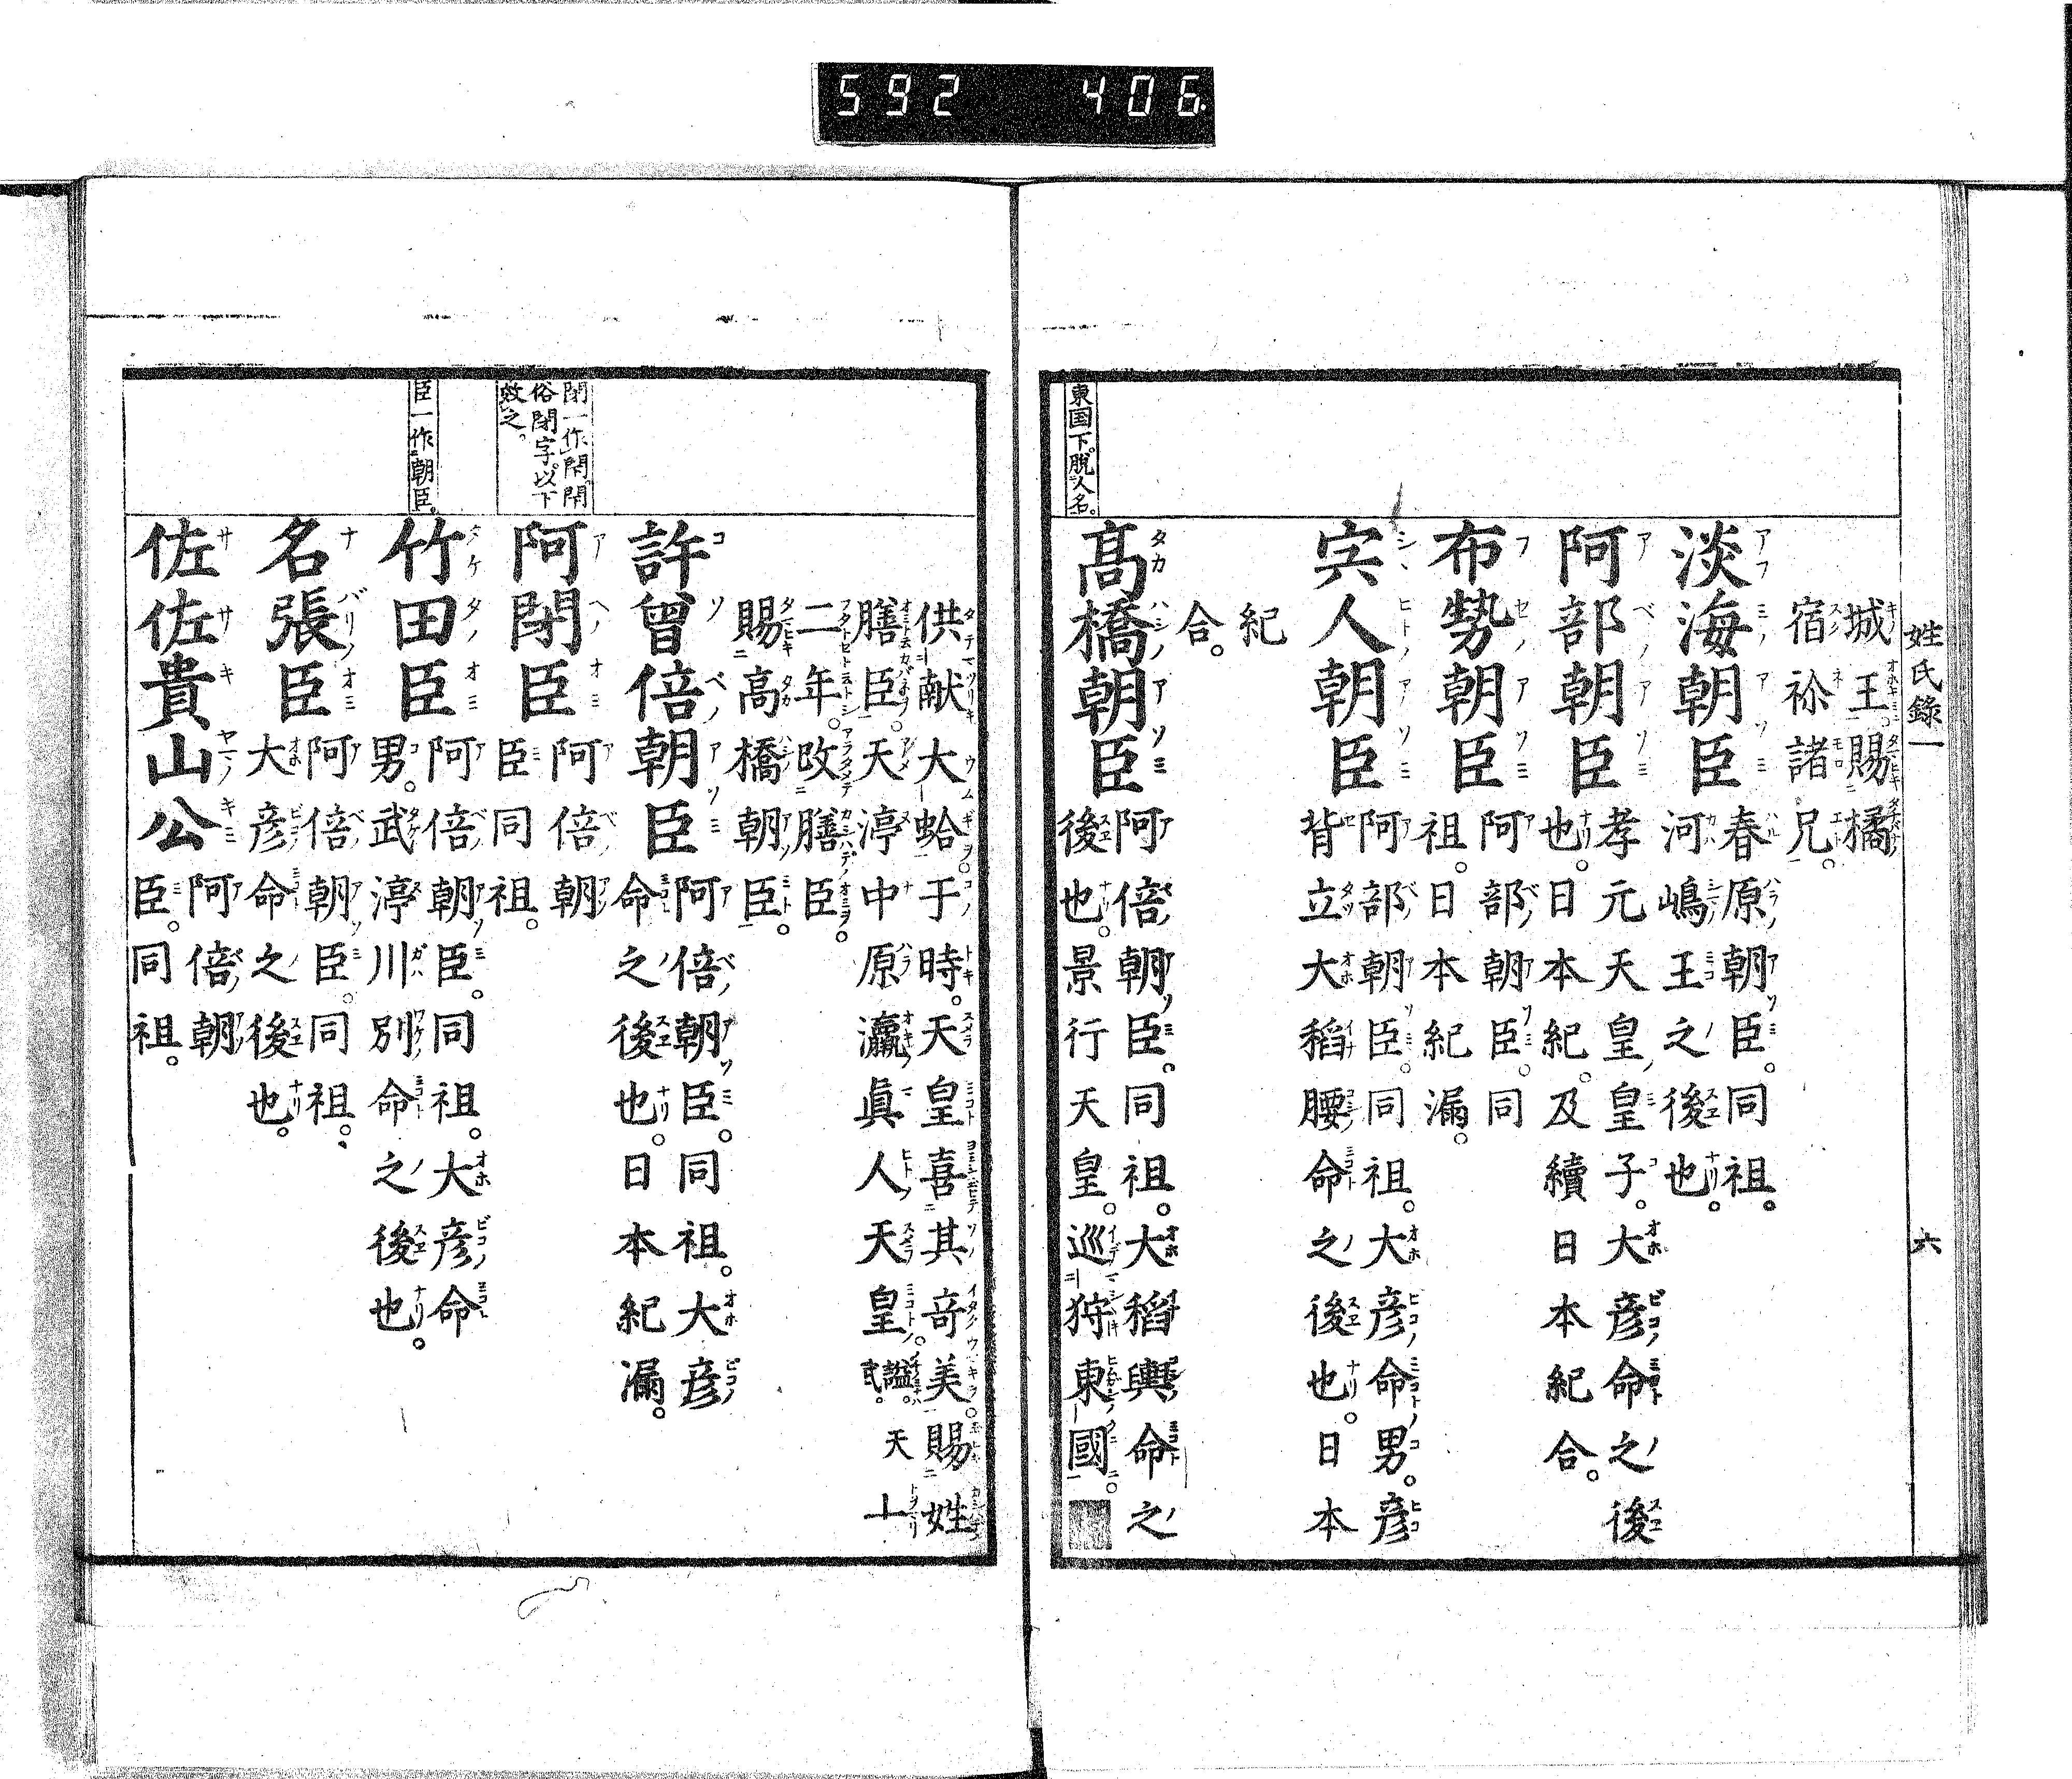 592 406
姓氏錄一 六
城王。賜橘
宿祢諸兄。
淡海朝臣 春原朝臣。同祖。
河嶋王之後也。
阿部朝臣 孝元天皇皇子。大彦命之後
也。日本紀。及續日本紀合。
布勢朝臣 阿部朝臣。同
祖。日本紀漏。
宍人朝臣 阿部朝臣。同祖。大彦命男。彦
背立大稻腰命之後也。日本
紀
合。
東国下。脱人名。
髙橋朝臣 阿倍朝臣。同祖。大稻輿命之
後也。景行天皇。巡狩東國。
供献大蛤于時。天皇喜其奇美。賜姓
膳臣。天渟中原瀛眞人天皇。謚天武。十
二年。改膳臣。
賜高橋朝臣。
許曾倍朝臣 阿倍朝臣。同祖。大彦
命之後也。日本紀漏。
閇一作閈閈
俗閇字。以下
效之。
阿閇臣 阿倍朝
臣同祖。
臣一作朝臣。
竹田臣 阿倍朝臣。同祖。大彦命
男。武渟川別命之後也。
名張臣 阿倍朝臣。同祖。
大彦命之後也。
佐佐貴山公 阿倍朝
臣。同祖。